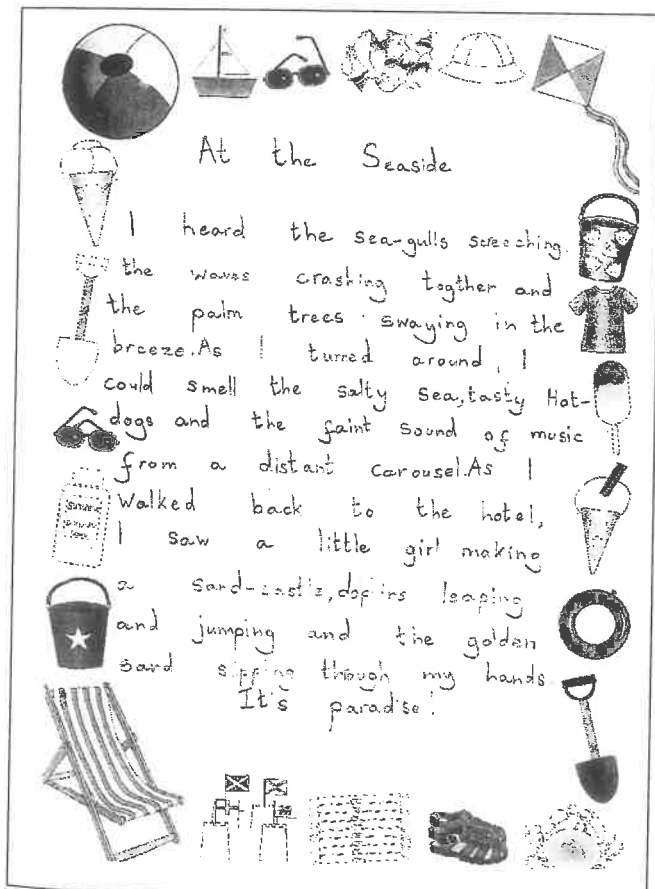 At the Seaside
I heard the sea-gulls screeching,
the waves crashing togther and
the palm trees swaying in the
breeze.As I turned around, I
could smell the salty sea,tasty Hot-
dogs and the faint sound of music
from a distant carousel.As I
Walked back to the hotel,
I saw a little girl making
a sand-castle, leaping
and jumping and the golden
sand through my hands
It's paradise!